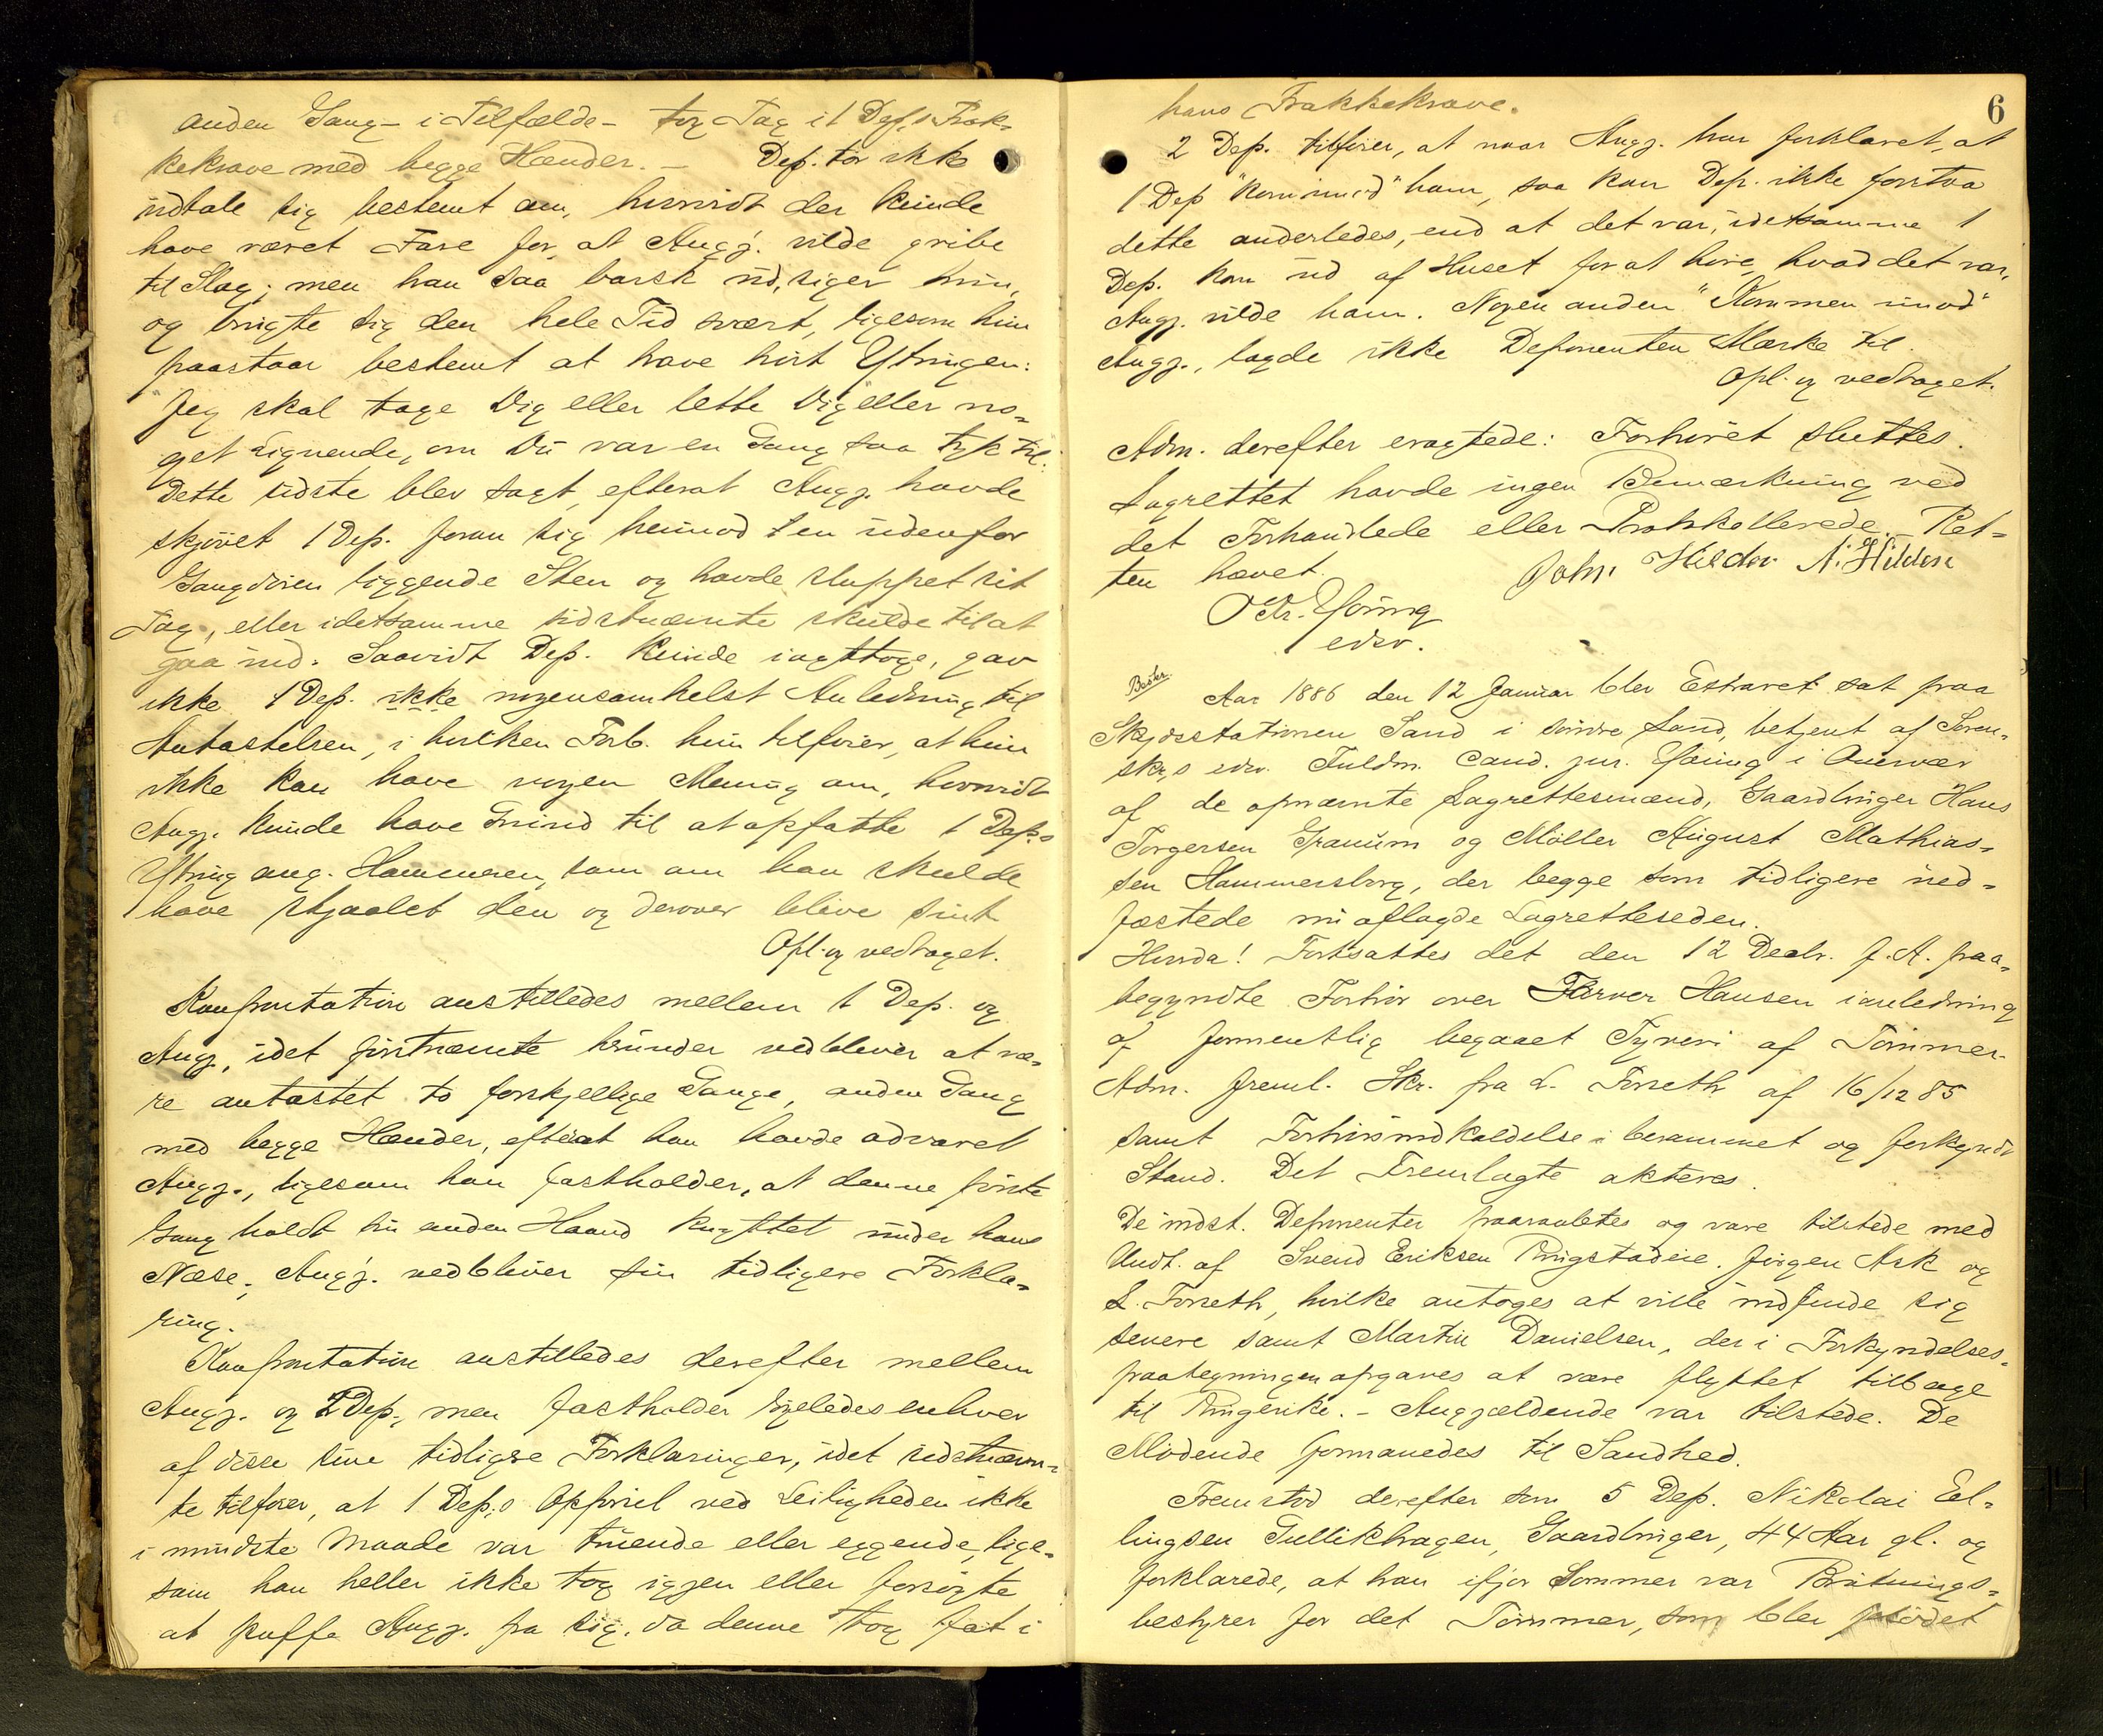 anden Gang – i Tilfælde – tog Tag i 1 Dep.s Frak-
kekrave med begge Hænder. – Dep. tør ikke
udtale sig bestemt om, hvorvidt der kunde
have været Fare for, at Angj. vilde gribe
til Slag; men han saa barsk ud, siger hun,
og brugte sig den hele Tid svært, ligesom hun
paastaar bestemt at have hørt Ytringen:
"Jeg skal tage Dig eller lette Dig eller no-
get Lignende, om Du var en Gang saa tyk til.
Dette sidste blev sagt, efterat Angj. havde
skjøvet 1 Dep. foran sig henimod en udenfor
Gangdøren liggende Sten og havde sluppet sit
Tag, eller idetsamme sidstnævnte skulde til at
gaa ind. Saavidt Dep. kunde iagttage, gav
ikke 1 Dep. ikke nogensomhelst Anledning til
Antastelsen, i hvilken Forb. hun tilføier, at hun
ikke kan have nogen Mening om, hvorvidt
Angj. kunde have Grund til at opfatte 1 Dep.s
Ytring ang. Hammeren, som om han skulde
have stjaalet den og derover blive sint
Opl. og vedtaget.
Konfrontation anstilledes mellem 1 Dep. og
Angj., idet førstnævnte herunder vedbliver at væ-
re antastet to forskjellige Gange, anden Gang
med begge Hænder, efterat han havde advaret
Angj., ligesom han fastholder, at denne første
Gang holdt sin anden Haand knyttet under hans
Næse; Angj. vedbliver sin tidligere Forkla-
ring.
Konfrontation anstilledes derefter mellem
Angj. og 2 Dep., men fastholder ligeledes enhver
af disse sine tidligere Forklaringer, idet sidstnævn-
te tilføier, at 1 Dep.s Opførsel ved Leiligheden ikke
i mindste Maade var truende eller eggende, lige-
som han heller ikke tog igjen eller forsøgte
at puffe Angj. fra sig, da denne tog fat i
6
hans Frakkekrave.
2 Dep. tilføier, at naar Angj. har forklaret, at
1 Dep "kom imod" ham, saa kan Dep. ikke forstaa
dette anderledes, end at det var, idetsamme 1
Dep. kom ud af Huset for at høre, hvad det var,
Angj. vilde ham. Nogen anden "Kommen imod"
Angj., lagde ikke Deponenten Mærke til.
Opl. og vedtaget.
Adm. derefter eragtede: Forhøret sluttes.
Lagrettet havde ingen Bemærkning ved
det Forhandlede eller Protokollerede. Ret-
ten hævet.
John Hilden N. Hilden
O Kr. Young
edsv.
Besør.
Aar 1886 den 12 Januar blev Extraret sat paa
Skjdsstationen Sand i søndre Land, betjent af Soren-
skr.s edsv. Fuldm. Cand. jur. Young i Overvær
af de opnævnte Lagrettesmænd, Gaardbruger Hans
Torgersen Granum og Møller August Mathias-
sen Hammersborg, der begge som tidligere ued-
fæstede nu aflagde Lagretteseden.
Hvorda! Fortsattes det den 12 Decbr. f. A. paa-
begyndte Forhør over Hansen i anledning
af formentlig begaaet Tyveri af Tømmer.
Adm. freml. Skr. fra L. Forseth af 16/12 85
samt Forhørsindkaldelse i berammet og forkyndt
Stand. Det Fremlagte akteres.
De indst. Deponenter paaraabtes og vare tilstede med
Undt. af Svend Eriksen Ringstadeie, Jørgen Ask og
L. Forseth, hvilke antoges at ville indfinde sig
senere samt Martin Danielsen, der i Forkyndelses-
paategningen opgaves at være flyttet tilbage
til Ringerike. – Angjældende var tilstede. De
Mødende formanedes til Sandhed.
Fremstod derefter som 5 Dep. Nikolai El-
lingsen Gullikhagen, Gaardbruger, 44 Aar gl. og
forklarede, at han ifjor Sommer var Brøtnings-
bestyrer for det Tømmer, som blev flødet